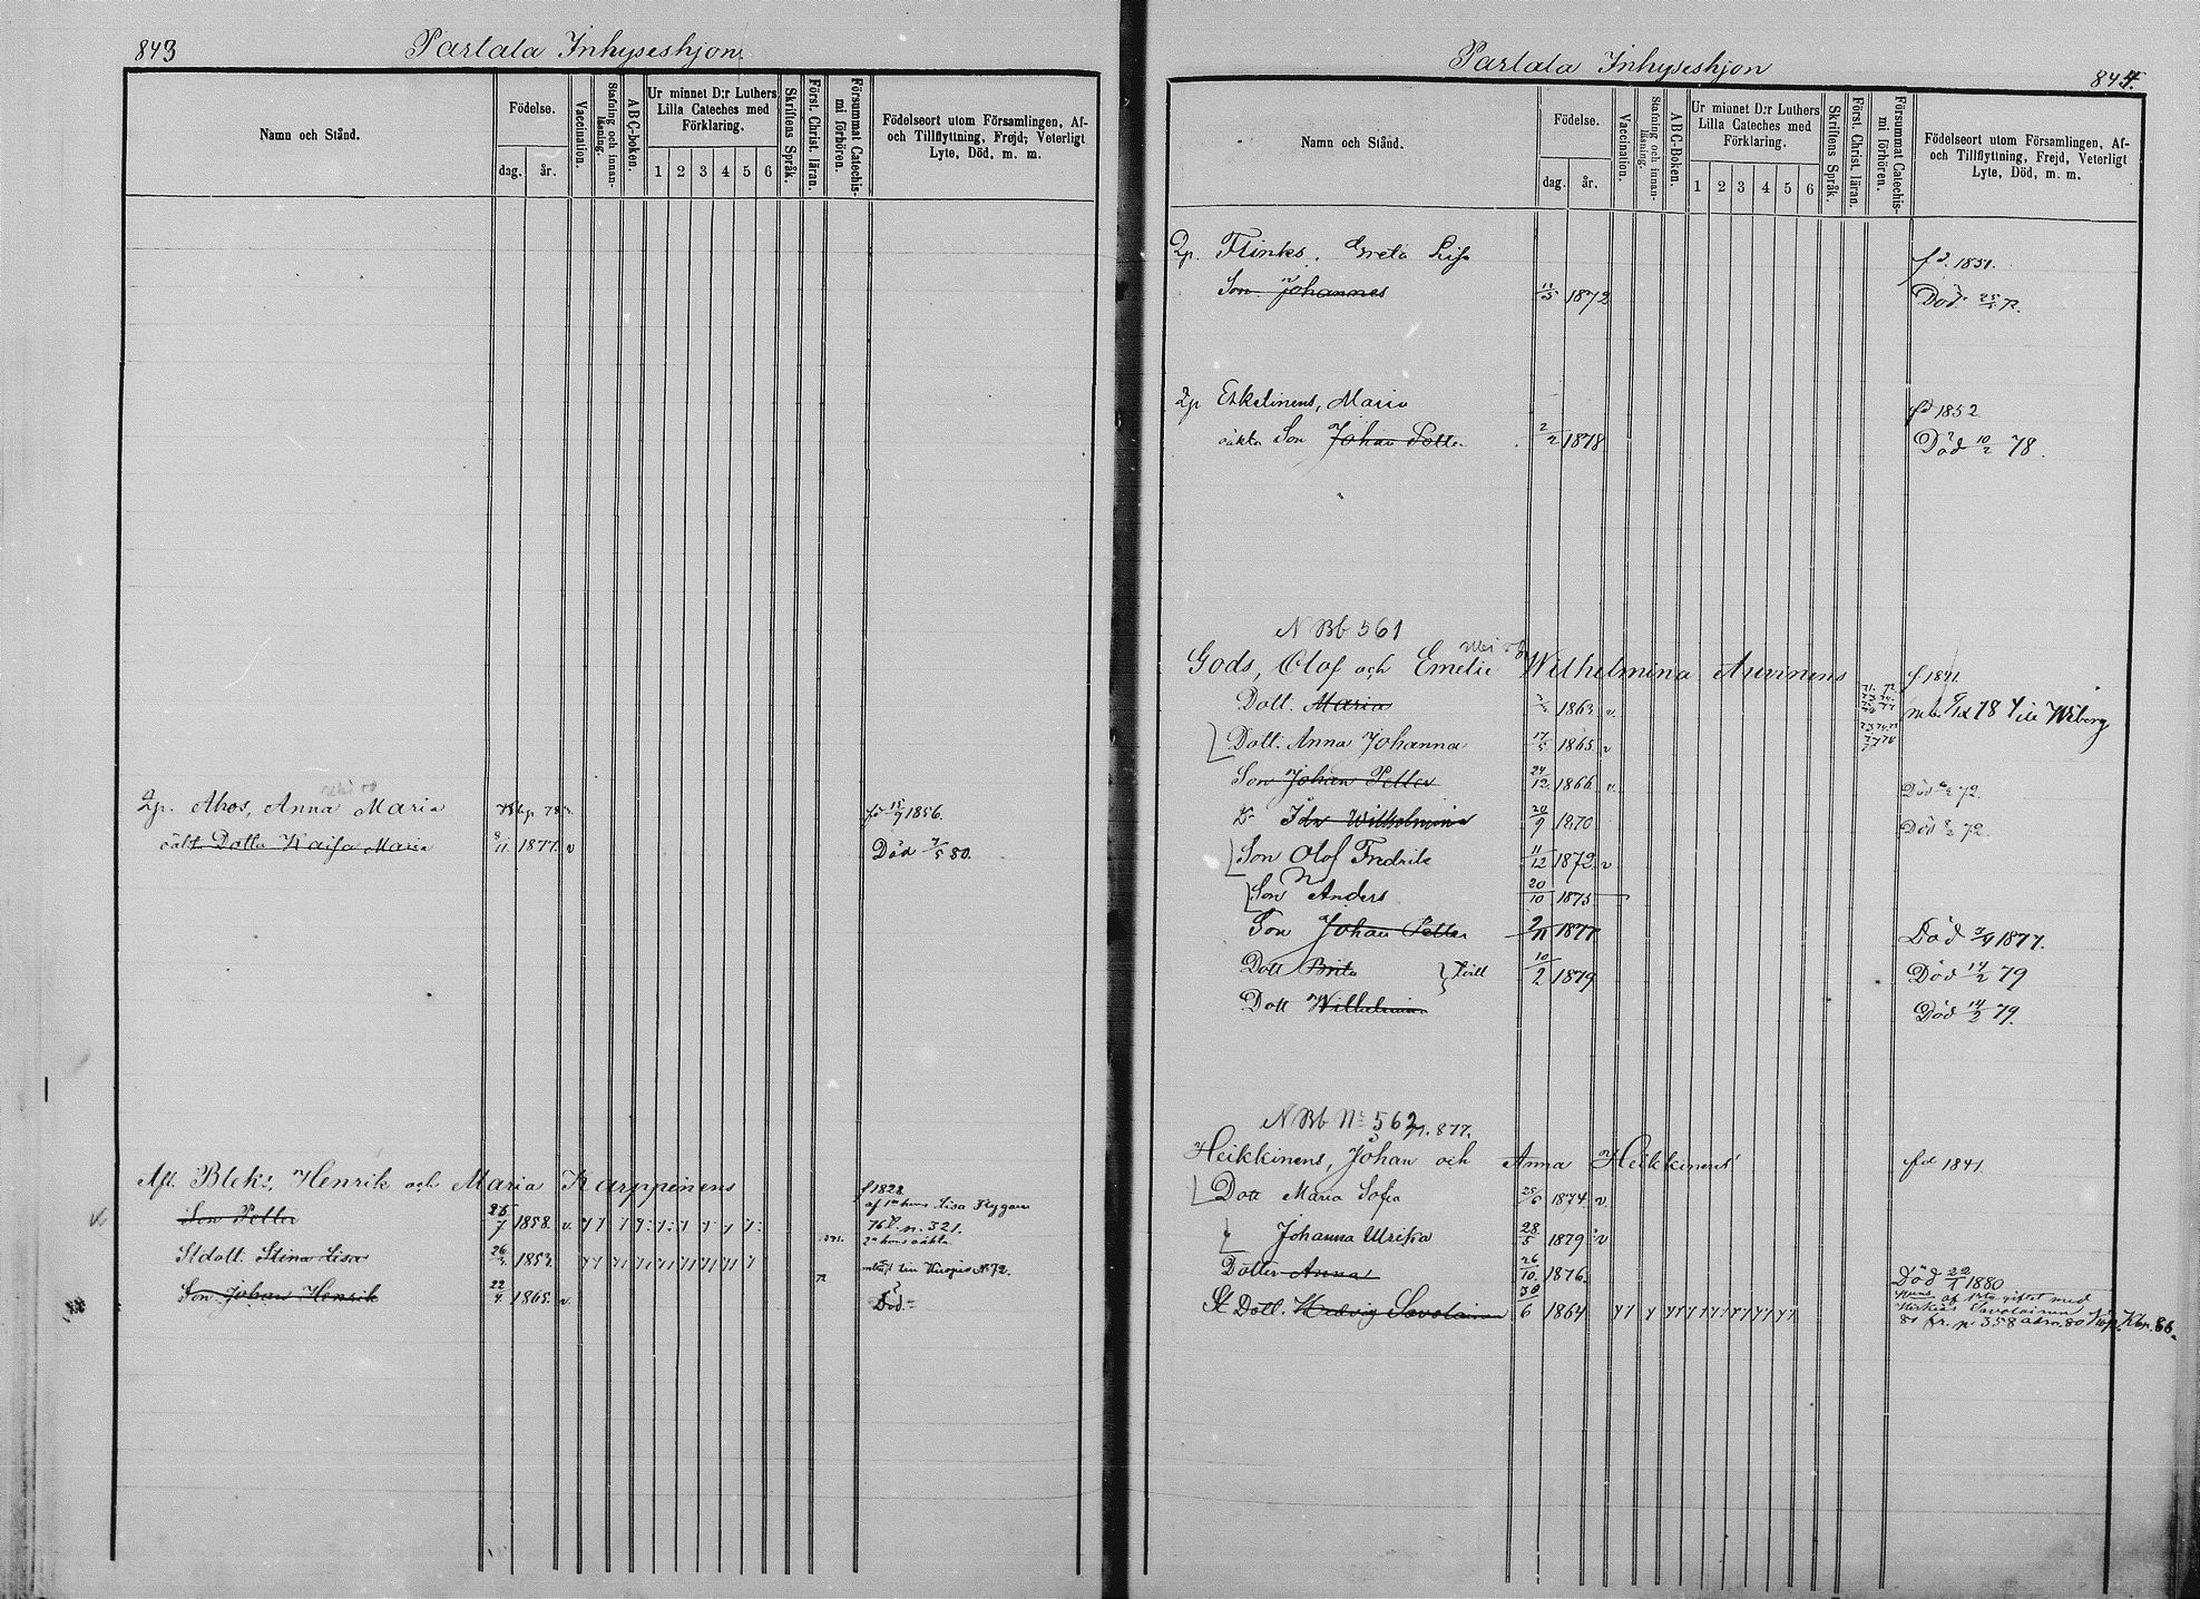 843
Partala Inhyseshjon
Namn och Stånd.
Födelse.
dag.
år.
Vaccination.
Stafning och innanläsning.
ABC-boken.
Ur minnet D:r Luthers Lilla Cateches med Förklaring.
1 2 3 4 5 6
Skriftens Språk.
Först. Christ. läran.
Försummat Catechismi förhören.
Födelseort utom Församlingen, Af- och Tillflyttning, Frejd, Veterligt Lyte, Död, m. m.
Qp. Ahos, Anna Maria fd 15/9 1856.
oäkt. Dotter Kaisa Maria 8/11 1877. v Död 7/5 80.
Aft. Bleks, Henrik och Maria Karppinens f 1828
af 1a hans Lisa Flygare
Son Petter 7 1858. v. 76 p. 321.
2a hans oäkta
St dott. Stina Lisa 26 1853
till Kuopio N 72.
Son Johan Henrik 22/4 1865. v Död
Partala Inhyseshjon
844.
Namn och Stånd.
Födelse.
dag.
år.
Vaccination.
Stafning och innanläsning.
ABC-Boken.
Ur minnet D:r Luthers Lilla Cateches med Förklaring.
1 2 3 4 5 6
Skriftens Språk.
Först. Christ. läran.
Försummat Catechismi förhören.
Födelseort utom Församlingen, Af- och Tillflyttning, Frejd, Veterligt Lyte, Död, m. m.
Qp. Flinks, Greta Lisa fd. 1851.
Son Johannes 1872 Död 72.
Qp Eskelinens, Maria fd 1852
oäkta Son Johan Petter 2/2 1878 Död 10/2 78.
N Bb 561
Gods, Olof och Emelie Wilhelmina Auvinens f 1841.
Dott. Maria 1863 v. 78 till Wiborg
Dott. Anna Johanna 17/5 1865 v
Son Johan Petter 24/12 1866 v. Död 72.
Dr Ida Wilhelmina 20/9 1870 Död 72.
Son Olof Fredrik 11/12 1872 v
Son Anders 20/10 1875
Son Johan Petter 1877 Död 1877.
Dott Brita } tvill 10/2 1879 Död 14/2 79
Dott Wilhelmina Död 14/2 79.
N Bb No 562 p. 877.
Heikkinens, Johan och Anna Heikkinens fd 1841
Dott Maria Sofia 25/6 1874. v.
Johanna Ulrika 28/5 1879 v
Dotter Anna 26/10. 1876. Död 22/1 1880
St Dott. Hedvig Savolainen 30/6 1864
Hans af 1sta giftet med
Savolainen
81 fr. p 358 Kbp. 86.